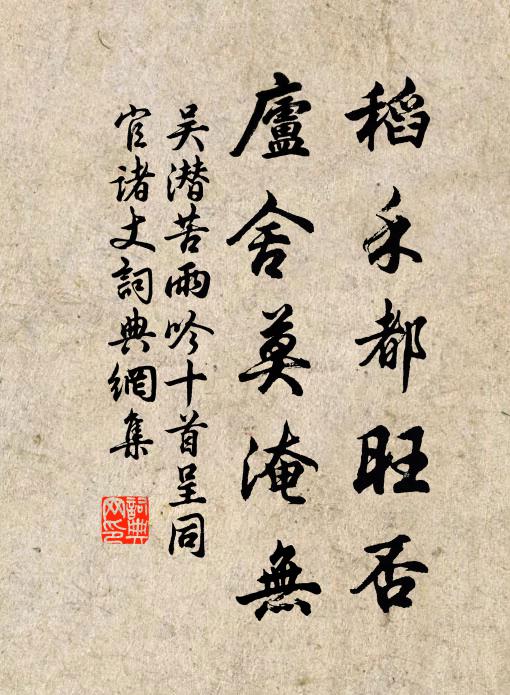 稻禾都旺否
廬舍莫淹無
吴潜苦雨吟十首呈同
官诸丈詞典網集
詞典网印